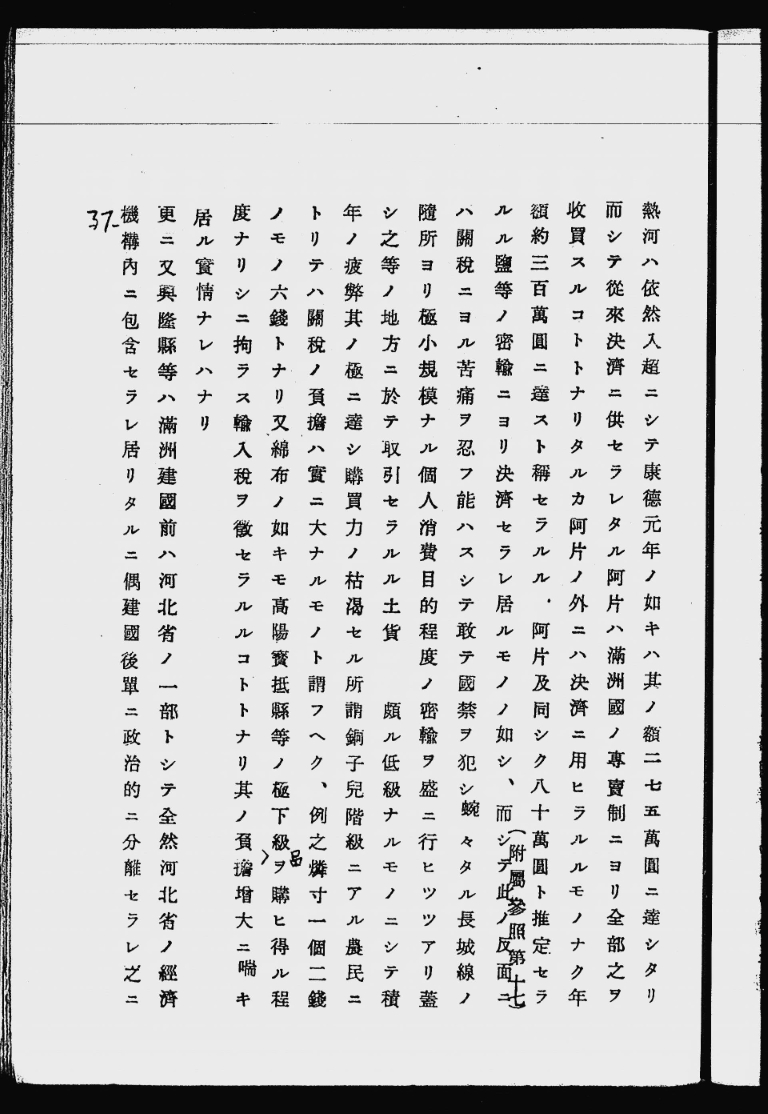 熱河ハ依然入超ニシテ康德元年ノ如キハ其ノ額二七五萬圓ニ達シタリ
而シテ從來決濟ニ供セラレタル阿片ハ滿洲國ノ專賣制ニヨリ全部之ヲ
收買スルコトトナリタルカ阿片ノ外ニハ決濟ニ用ヒラルルモノナク年
額約三百萬圓ニ達スト稱セラルル・阿片及同シク八十萬圓ト推定セラ
ルル鹽等ノ密輸ニヨリ決濟セラレ居ルモノノ如シ、而シテ此ノ反面ニ
(附屬參照第十七)
ハ關稅ニヨル苦痛ヲ忍フ能ハスシテ敢テ國禁ヲ犯シ蜿々タル長城線ノ
隨所ヨリ極小規模ナル個人消費目的程度ノ密輸ヲ盛ニ行ヒツツアリ蓋
シ之等ノ地方ニ於テ取引セラルル土貨 頗ル低級ナルモノニシテ積
年ノ疲弊其ノ極ニ達シ購買力ノ枯渴セル所謂銅子兒階級ニアル農民ニ
トリテハ關稅ノ負擔ハ實ニ大ナルモノト謂フヘク、例之燐寸一個二錢
ノモノ六錢トナリ又綿布ノ如キモ高陽寶抵縣等ノ極下級品ヲ購ヒ得ル程
度ナリシニ拘ラス輸入稅ヲ徵セラルルコトトナリ其ノ負擔增大ニ喘キ
居ル實情ナレハナリ
更ニ又興隆縣等ハ滿洲建國前ハ河北省ノ一部トシテ全然河北省ノ經濟
機構內ニ包含セラレ居リタルニ偶建國後單ニ政治的ニ分離セラレ之ニ
37-